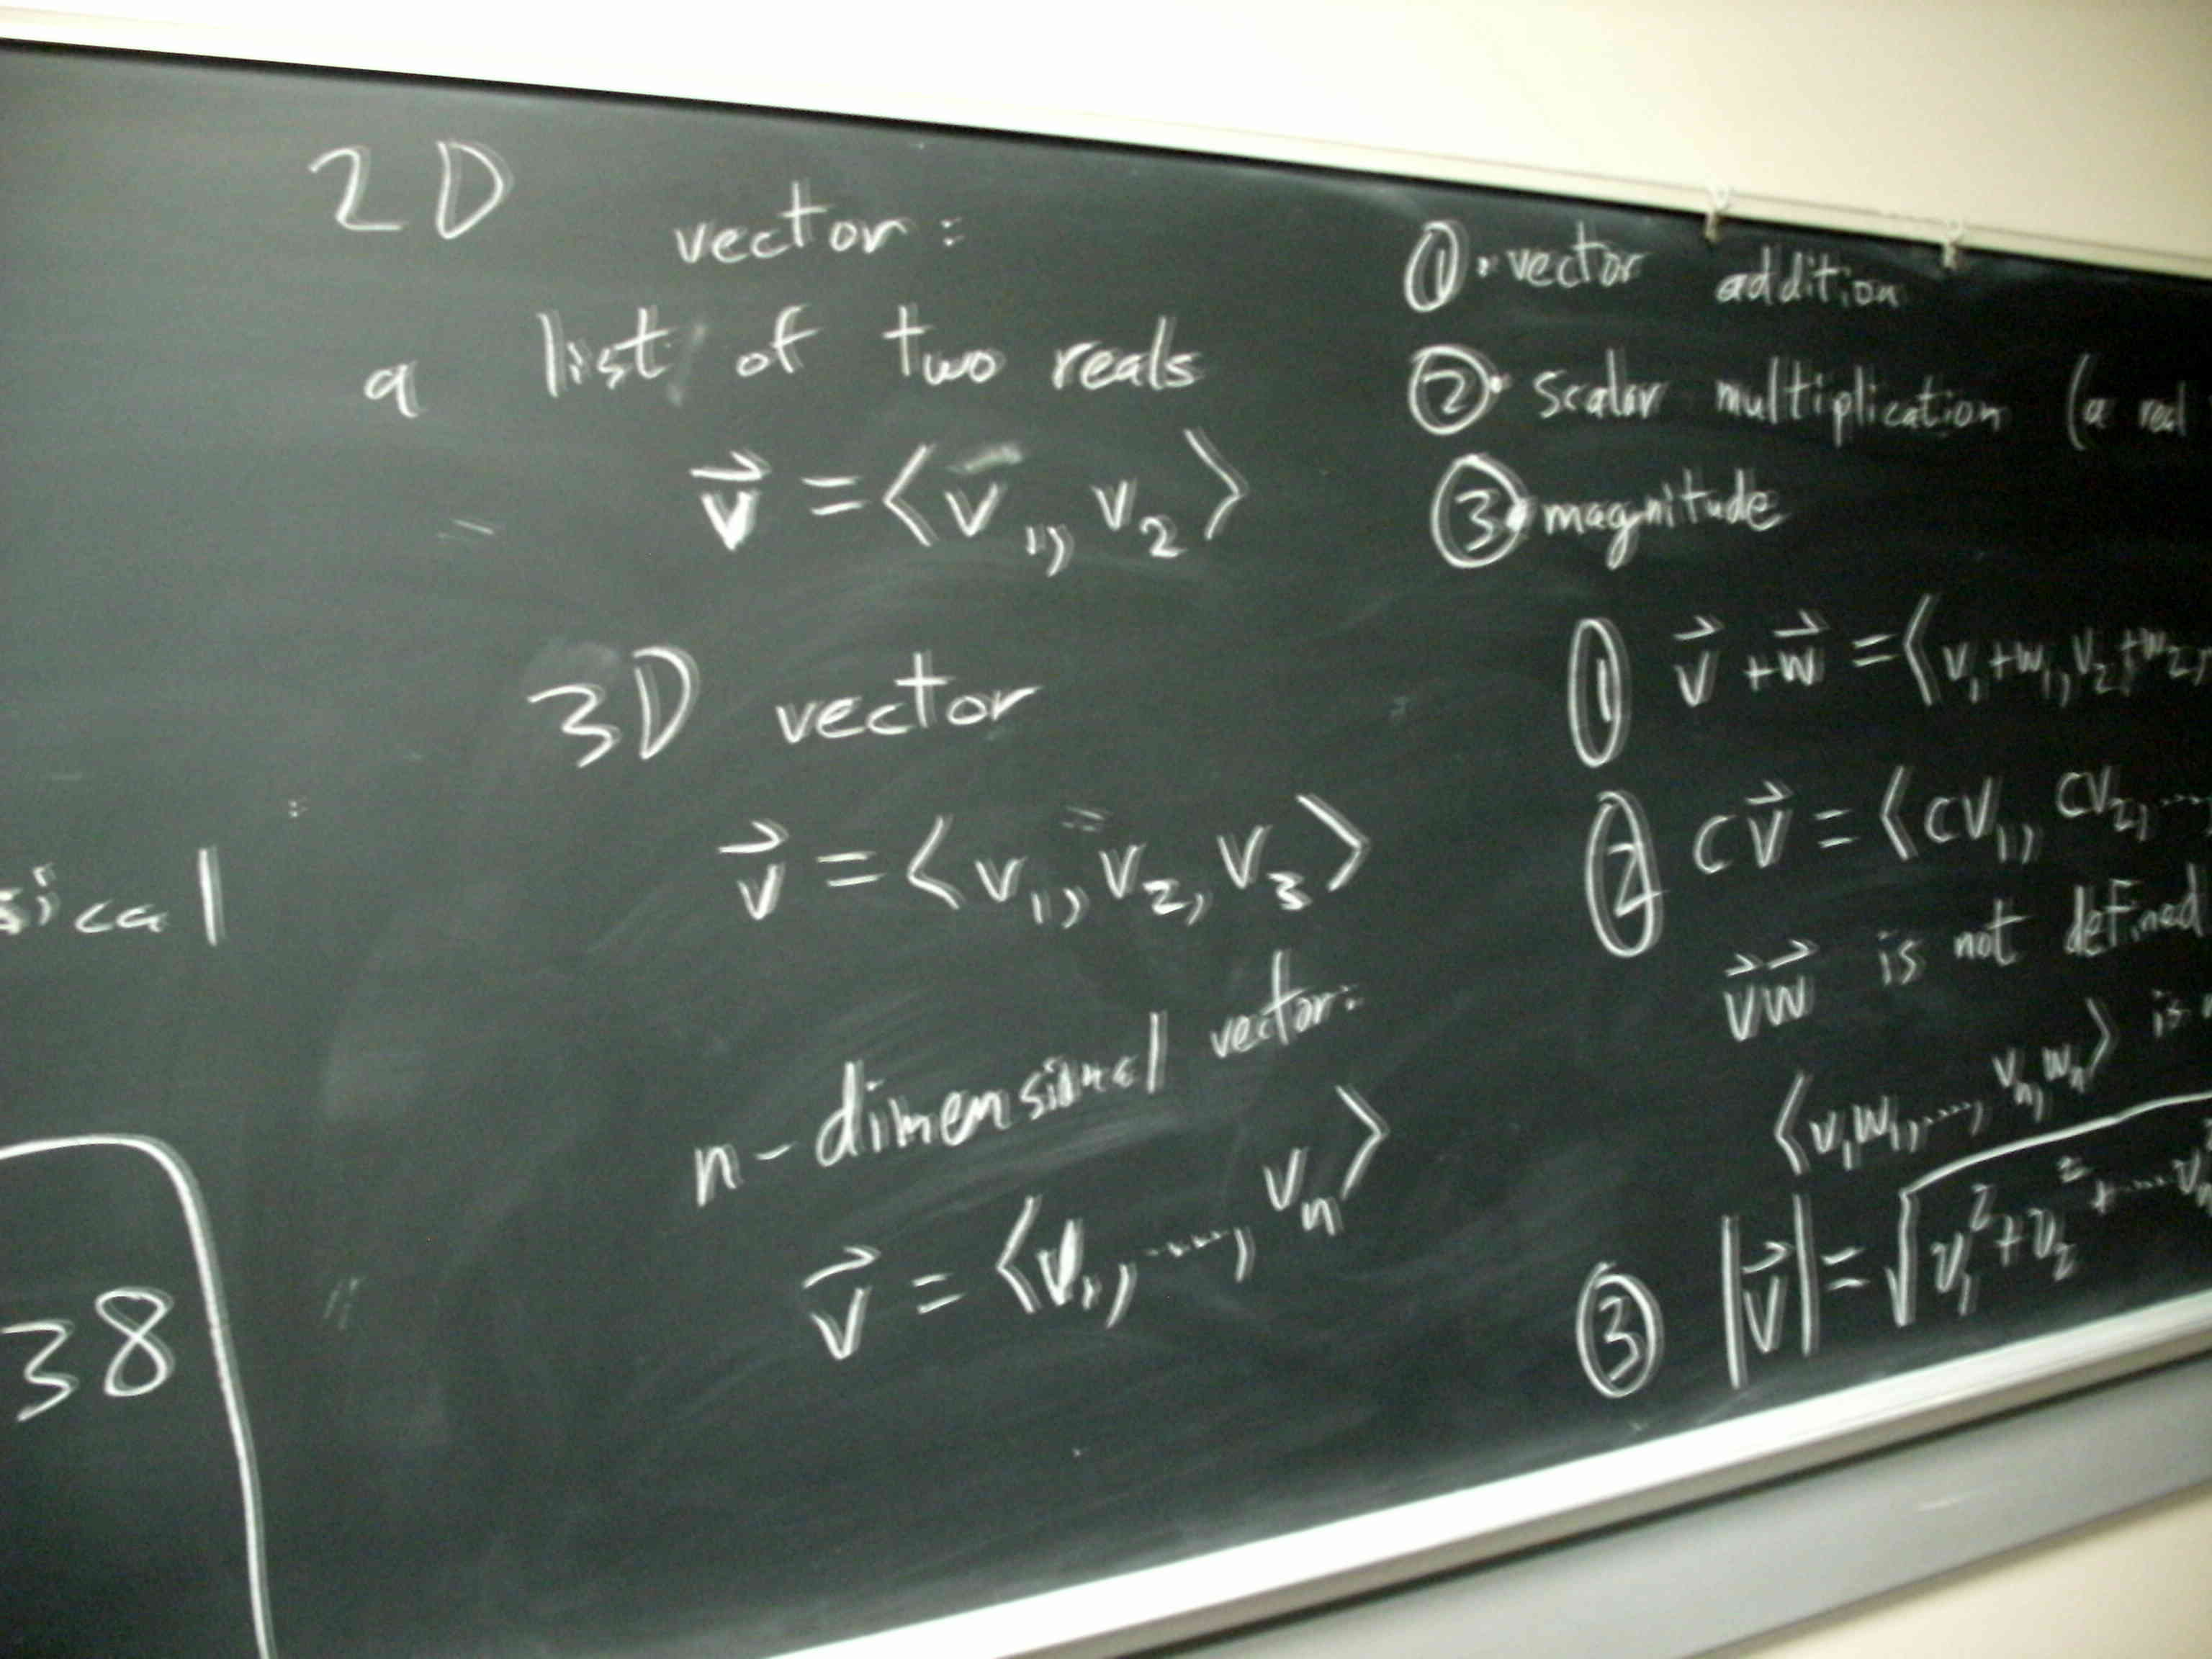 2D vector:
a list of two reals
v⃗ = ⟨v₁, v₂⟩
3D vector
v⃗ = ⟨v₁, v₂, v₃⟩
n-dimensional vector:
v⃗ = ⟨v₁, ...., vₙ⟩
sical
38
① • vector addition
② • scalar multiplication (a real
③ • magnitude
① v⃗ + w⃗ = ⟨v₁+w₁, v₂+w₂,
② cv⃗ = ⟨cv₁, cv₂, ....
v⃗w⃗ is not defined
⟨v₁w₁, ...., vₙwₙ⟩ is
③ |v⃗| = √v₁² + v₂² + .... vₙ²